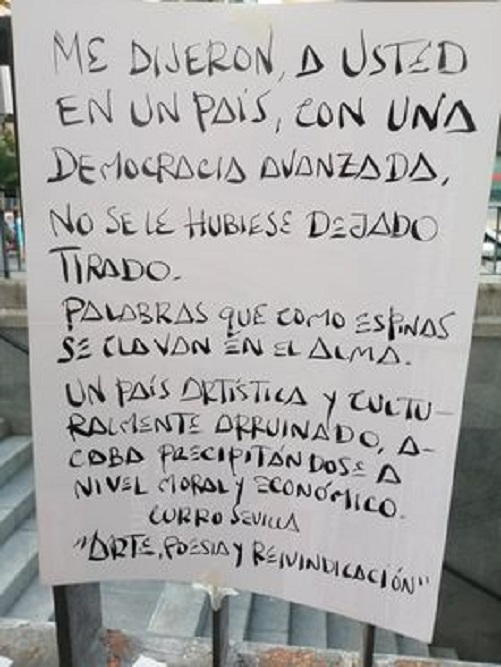 ME DIJERON, A USTED
EN UN PAÍS, CON UNA
DEMOCRACIA AVANZADA,
NO SE LE HUBIESE DEJADO
TIRADO.
PALABRAS QUE COMO ESPINAS
SE CLAVAN EN EL ALMA.
UN PAÍS ARTÍSTICA Y CULTU-
RALMENTE ARRUINADO, A-
CABA PRECIPITÁNDOSE A
NIVEL MORAL Y ECONÓMICO.
CURRO SEVILLA
"ARTE, POESIA Y REIVINDICACIÓN"